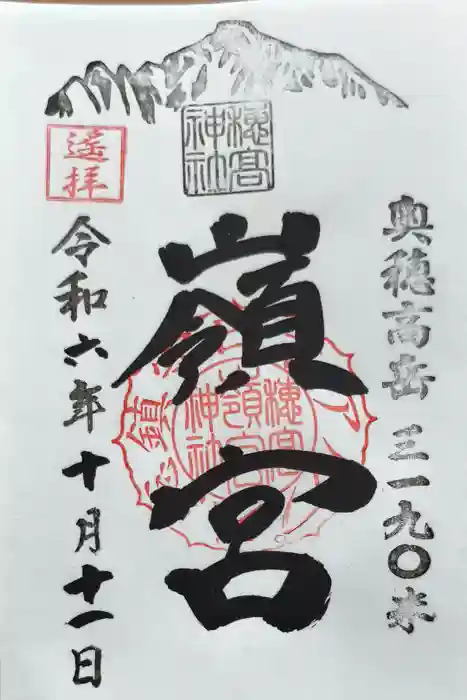 奥穂高岳 三一九〇米
穂髙
神社
嶺宮
穂髙
嶺宮
神社
鎮
遥拝
令和六年十月十一日